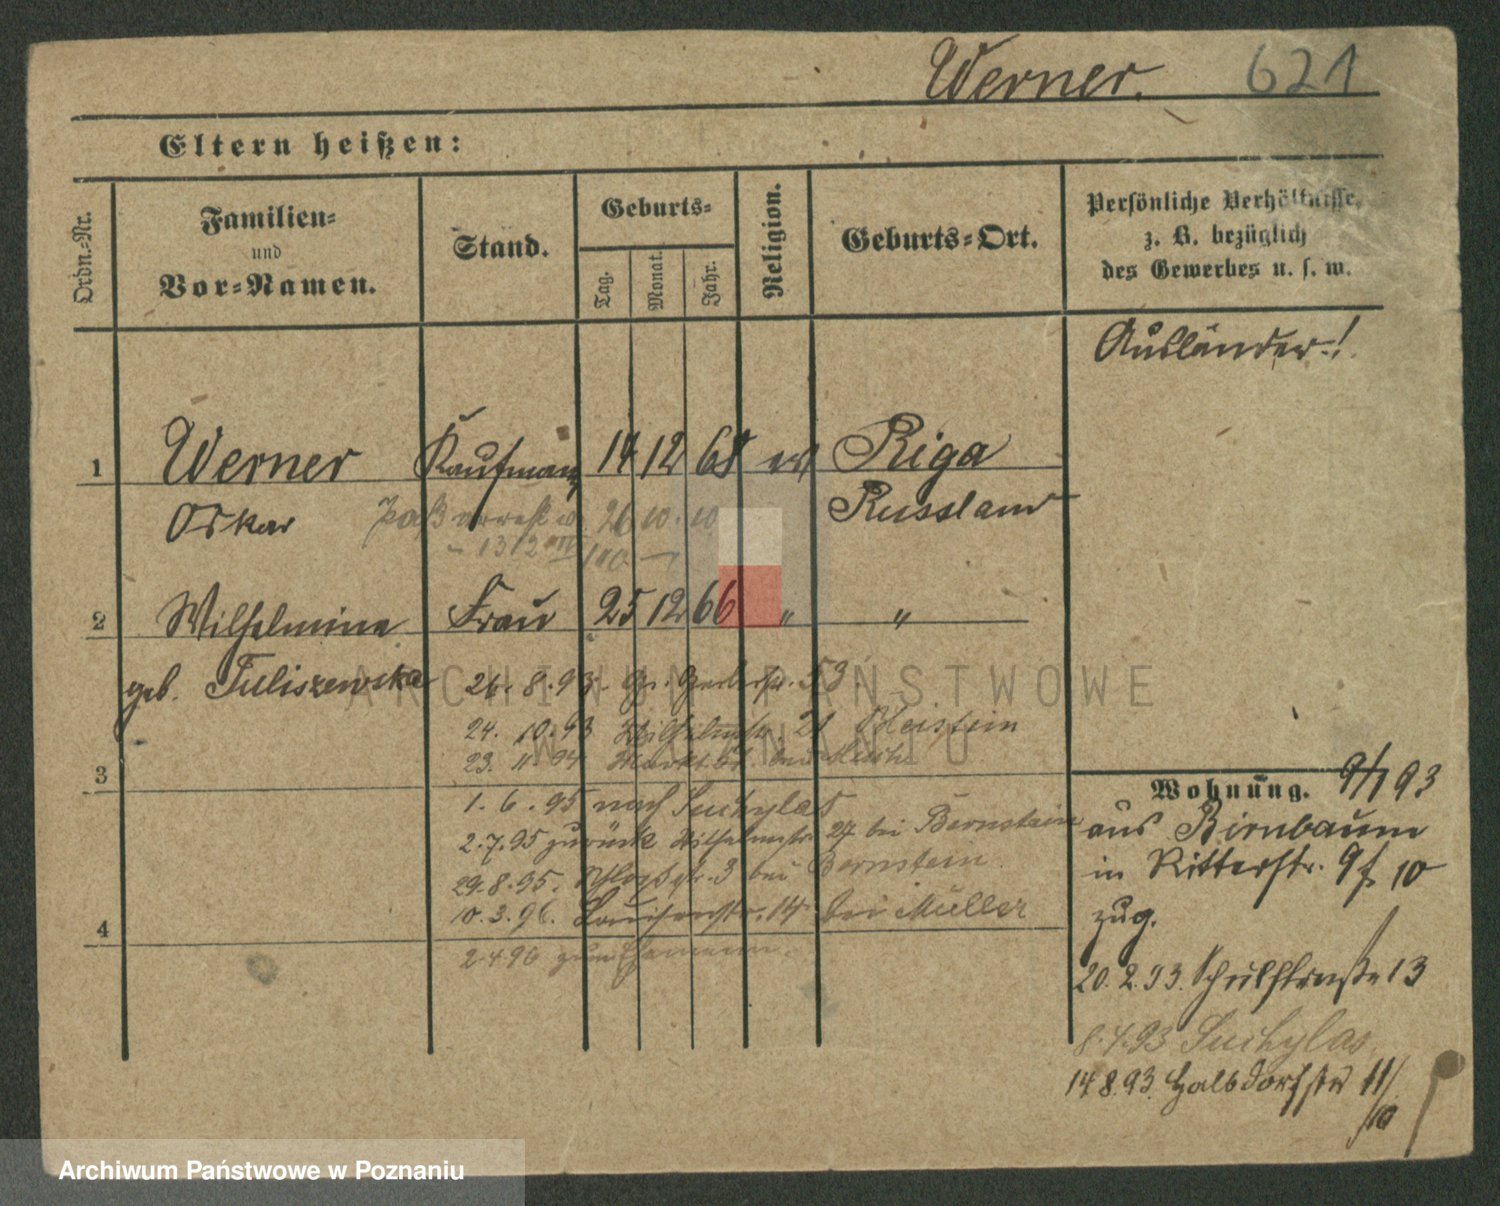 Werner. 621
Eltern heißen:
Ordn.-Nr.
Familien-
und
Vor-Namen.
Stand.
Geburts-
Tag.
Monat.
Jahr.
Religion.
Geburts-Ort.
Persönliche Verhältnisse,
z. B. bezüglich
des Gewerbes u. s. w.
Ausländer!
1 Werner Kaufmann 14 12 68 Riga
Oskar 26 10. 10 Russland
2 Wilhelmina Frau 25 12 66 " "
geb. Tuliszewska
26. 8. 93. Gr. Gerberstr. 53.
24. 10. 93 Wilhelmstr. 21
23. 11. 94 Markt
3
1. 6. 95 nach Suchylas
2. 7. 95 zurück Wilhelmstr. 27 bei Bernstein
29. 8. 95. Schloßstr. 3 bei Bernstein
10. 3. 96. Louisenstr. 14 bei Müller
4
2 4 96 zum Ehemann.
Wohnung. 9/1 93
aus Birnbaum
in Ritterstr. 9 10
zug.
20. 2. 93. Schulstraße 13
8. 4. 93 Suchylas
14 8. 93. Halbdorfstr 11/
10
ARCHIWUM PAŃSTWOWE
W POZNANIU
Archiwum Państwowe w Poznaniu